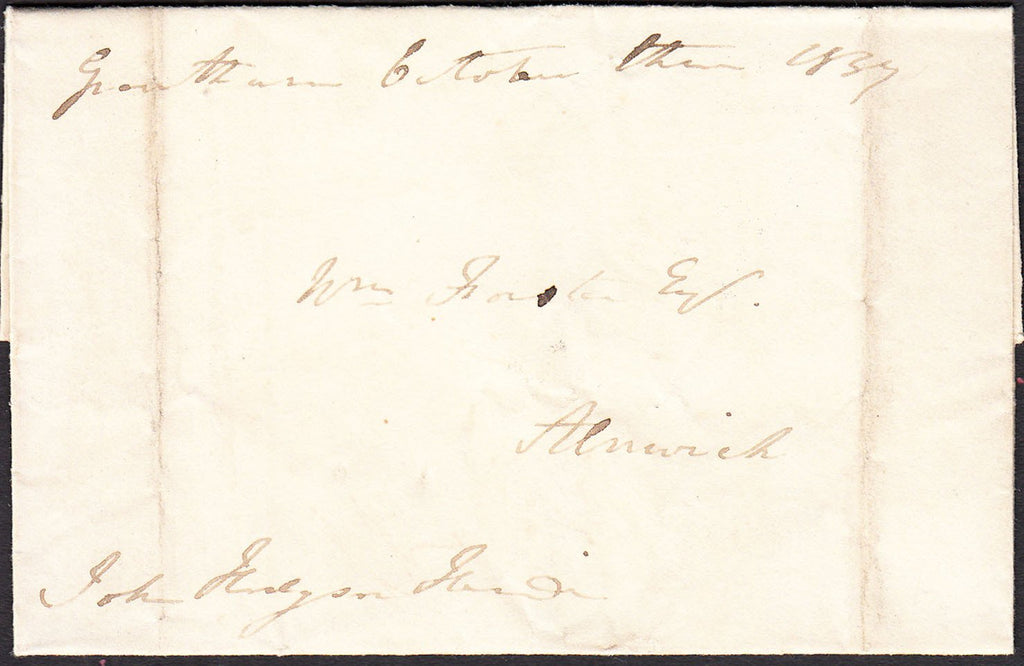 Grantham October three 1837
Wm Forster Esqr.
Alnwick
John Hodgson Hinde